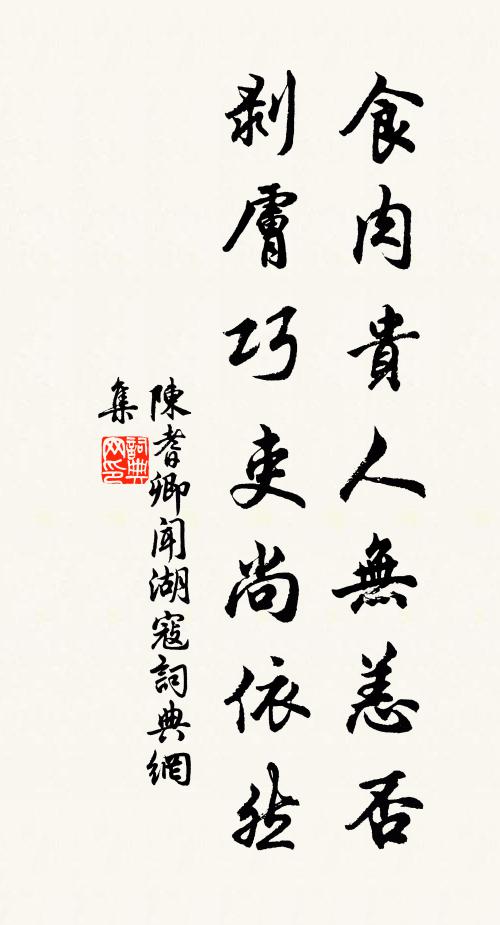 食肉貴人無恙否
剥膚巧吏尚依然
陳耆卿聞湖寇詞典網
集
詞典网印